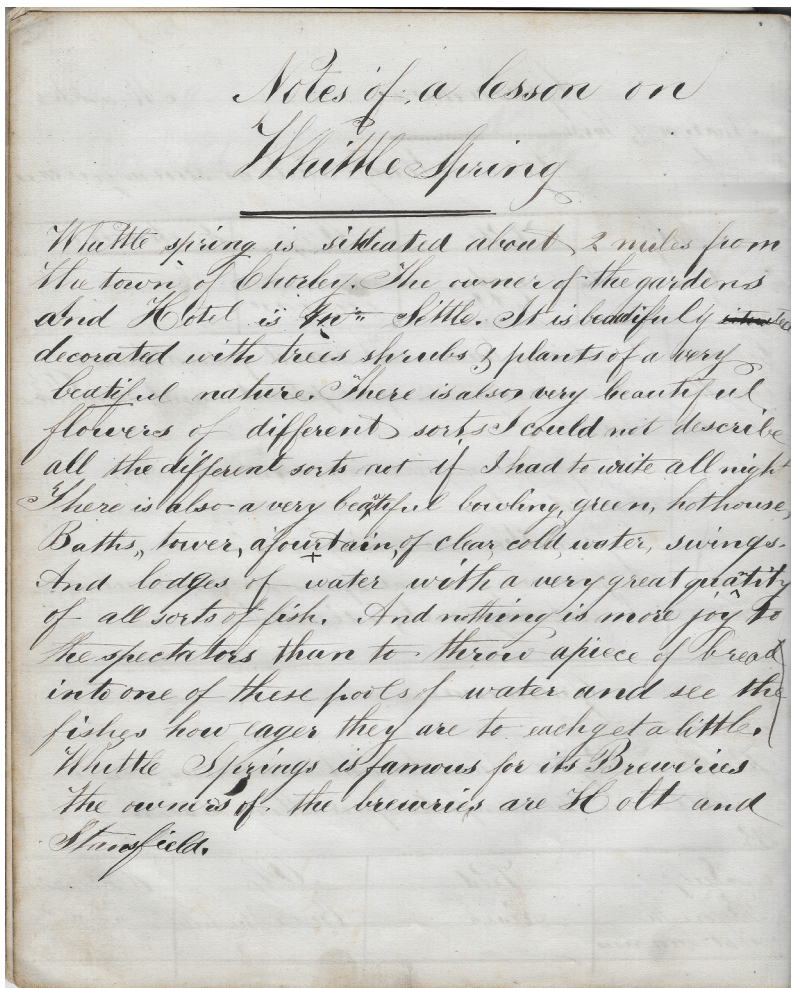 Notes of a lesson on
Whittle Spring
Whittle spring is sitteated about 2 miles from
the town of Chorley. The owner of the gardens
and Hotel is Settle. It is beautifuly
decorated with trees shrubs & plants of a very
beatiful nature. There is also very beautiful
flowers of different sorts I could not describe
all the different sorts not if I had to write all night
There is also a very beautiful bowling, green, hothouse,
Baths, tower, a fourtain, of clear, cold, water, swings.
And lodges of water with a very great quatity
of all sorts of fish. And nothing is more joy to
the spectators than to throw apiece of bread
into one of these pools of water and see the
fishes how eager they are to each get a little.
Whittle Springs is famous for its Breweries
the owners of the breweries are Holt and
Stansfield.